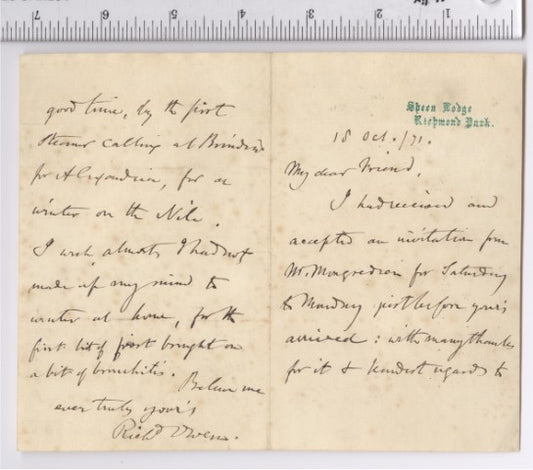 Sheen Lodge
Richmond Park.
18 Oct. /71.
My dear Friend,
I had received and
accepted an invitation from
Mr. Mongredien for Saturday
to Monday just before your's
arrived: with many thanks
for it & kindest regards to
good time, by the first
Steamer calling at Brindisi
for Alexandria, for a
winter on the Nile.
I wish almost I had not
made up my mind to
winter at home, for the
first bit of frost brought on
a bit of bronchitis.
Believe me
ever truly your's
Richd. Owen.